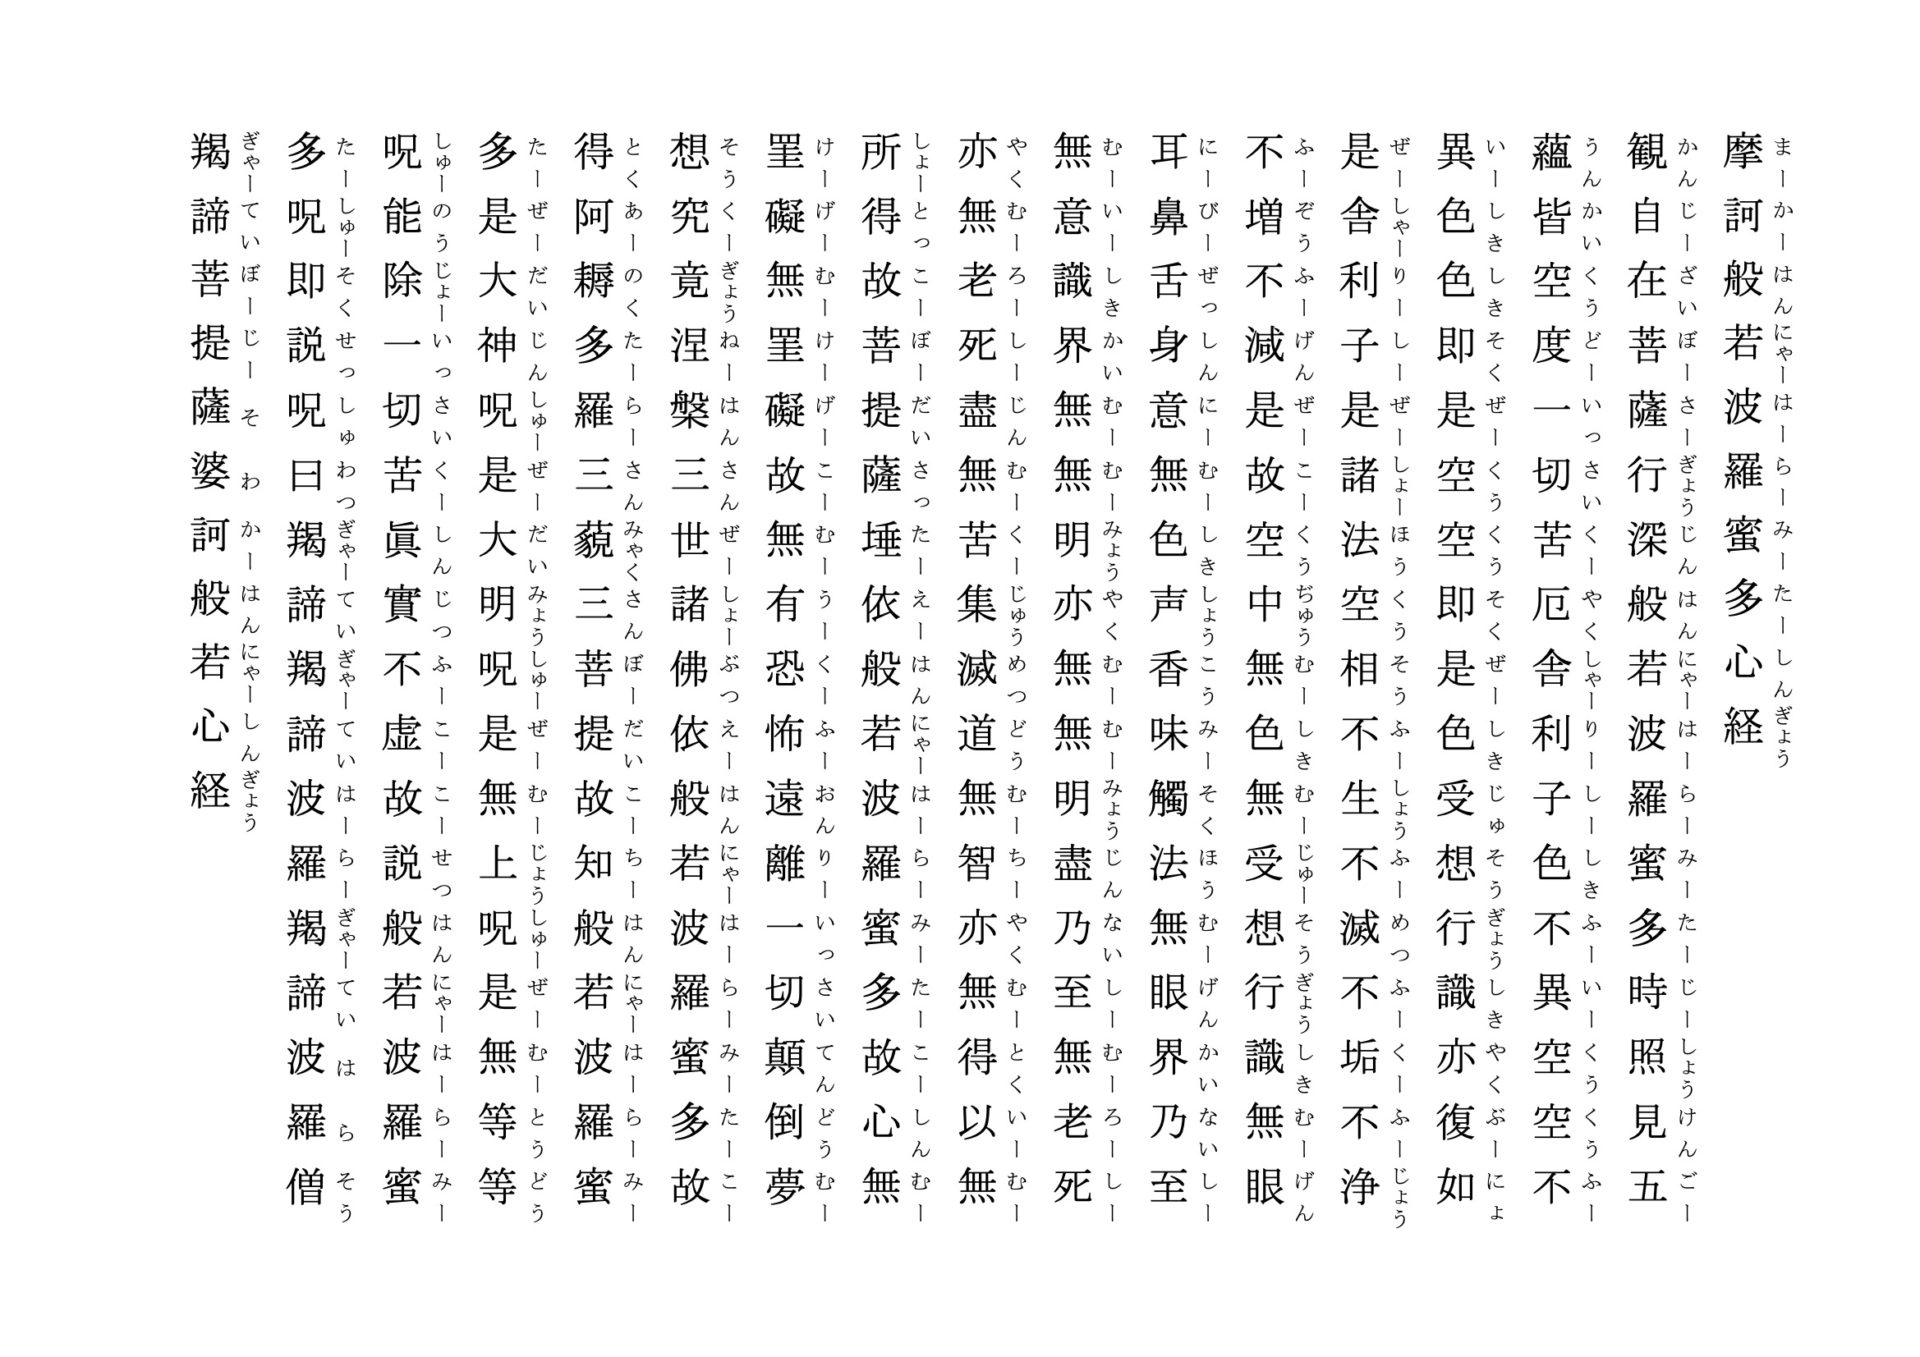 摩訶般若波羅蜜多心経
まーかーはんにゃーはーらーみーたーしんぎょう
観自在菩薩行深般若波羅蜜多時照見五
かんじーざいぼーさーぎょうじんはんにゃーはーらーみーたーじーしょうけんごー
蘊皆空度一切苦厄舎利子色不異空空不
うんかいくうどーいっさいくーやくしゃーりーしーしきふーいーくうくうふー
異色色即是空空即是色受想行識亦復如
いーしきしきそくぜーくうくうそくぜーしきじゅそうぎょうしきやくぶーにょ
是舎利子是諸法空相不生不滅不垢不浄
ぜーしゃーりーしーぜーしょーほうくうそうふーしょうふーめつふーくーふーじょう
不増不減是故空中無色無受想行識無眼
ふーぞうふーげんぜーこーくうぢゅうむーしきむーじゅーそうぎょうしきむーげん
耳鼻舌身意無色声香味觸法無眼界乃至
にーびーぜっしんにーむーしきしょうこうみーそくほうむーげんかいないしー
無意識界無無明亦無無明盡乃至無老死
むーいーしきかいむーむーみょうやくむーむーみょうじんないしーむーろーしー
亦無老死盡無苦集滅道無智亦無得以無
やくむーろーしーじんむーくーじゅうめつどうむーちーやくむーとくいーむー
所得故菩提薩埵依般若波羅蜜多故心無
しょーとっこーぼーだいさったーえーはんにゃーはーらーみーたーこーしんむー
罣礙無罣礙故無有恐怖遠離一切顛倒夢
けーげーむーけーげーこーむーうーくーふーおんりーいっさいてんどうむー
想究竟涅槃三世諸佛依般若波羅蜜多故
そうくーぎょうねーはんさんぜーしょーぶつえーはんにゃーはーらーみーたーこー
得阿耨多羅三藐三菩提故知般若波羅蜜
とくあーのくたーらーさんみゃくさんぼーだいこーちーはんにゃーはーらーみー
多是大神呪是大明呪是無上呪是無等等
たーぜーだいじんしゅーぜーだいみょうしゅーぜーむーじょうしゅーぜーむーとうどう
呪能除一切苦眞實不虚故説般若波羅蜜
しゅーのうじょーいっさいくーしんじつふーこーこーせつはんにゃーはーらーみー
多呪即説呪曰羯諦羯諦波羅羯諦波羅僧
たーしゅーそくせっしゅわつぎゃーていぎゃーていはーらーぎゃーていはらそう
羯諦菩提薩婆訶般若心経
ぎゃーていぼーじーそわかーはんにゃーしんぎょう